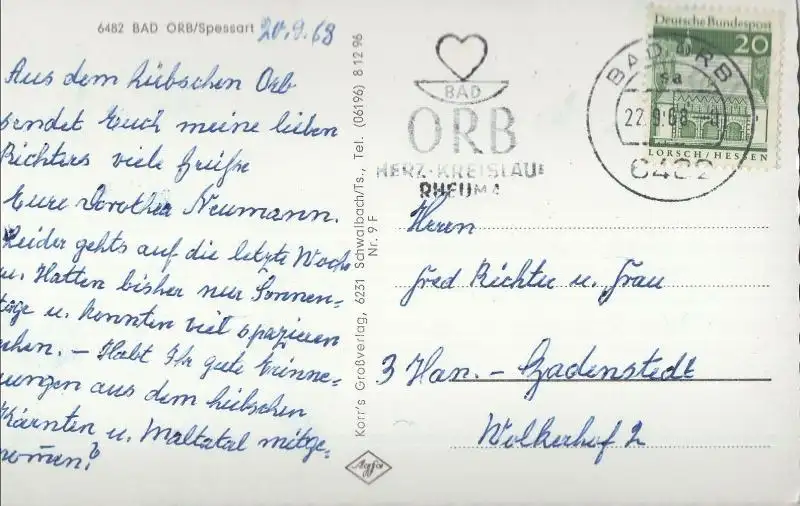 6482 BAD ORB/Spessart 20.9.68
Aus dem hübschen Orb
sendet Euch meine lieben
Richters viele Grüße
Eure Dorothea Neumann.
Leider gehts auf die letzte Woche
u. Hatten bisher nur Sonnen-
tage u. konnten viel spazieren
gehen. – Habt Ihr gute Erinne-
rungen aus dem hübschen
Kärnten u. Maltatal mitge-
nommen?
Korr's Großverlag, 6231 Schwalbach/Ts., Tel. (06196) 8 12 96
Nr. 9 F
Agfa
BAD
ORB
HERZ-KREISLAUF
RHEUMA
BAD ORB
sa
22.9.68
6482
Deutsche Bundespost
20
LORSCH/HESSEN
Herrn
Fred Richter u. Frau
3 Han. – Badenstedt
Wolkerhof 2